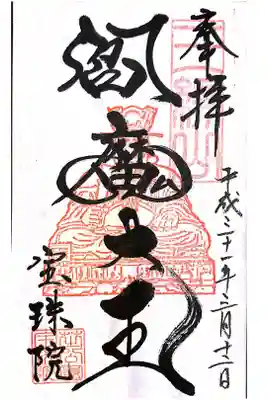 奉拝
平成二十一年二月十二日
閻魔大王
宝珠院